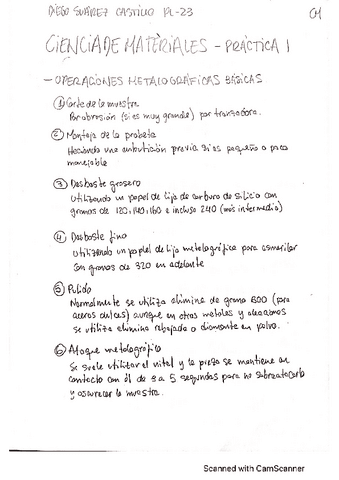 DIEGO SUÁREZ CASTILLO PL-23 CM
CIENCIA DE MATERIALES - PRÁCTICA 1
- OPERACIONES METALOGRÁFICAS BÁSICAS
① Corte de la muestra
Por abrasión (si es muy grande) por tronzadora.
② Montaje de la probeta
Haciendo una embutición previa si es pequeño o poco
manejable
③ Desbaste grosero
Utilizando un papel de lija de carburo de silicio con
granos de 120, 140, 160 e incluso 240 (más intermedio)
④ Desbaste fino
Utilizando un papel de lija metalográfica para esmerilar
con granos de 320 en adelante
⑤ Pulido
Normalmente se utiliza alúmina de grano 600 (para
aceros dulces) aunque en otros metales y aleaciones
se utiliza alúmina rebajada o diamante en polvo.
⑥ Ataque metalográfico
Se suele utilizar el nital y la pieza se mantiene en
contacto con él de 3 a 5 segundos para no sobreatacarla
y oscurecer la muestra.
Scanned with CamScanner